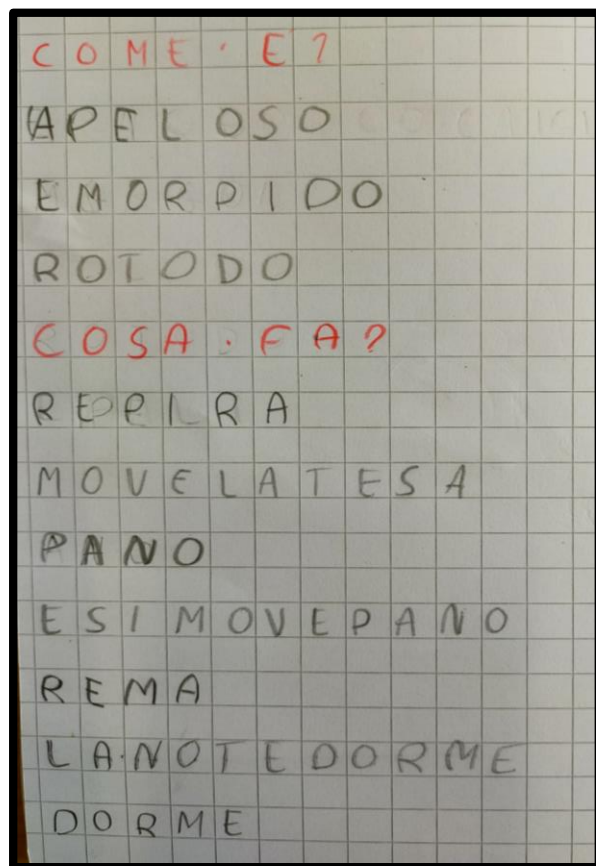 COME·E?
APELOSO
EMORPIDO
ROTODO
COSA·FA?
REPIRA
MOVELATESA
PANO
ESIMOVEPANO
REMA
LA·NOTEDORME
DORME